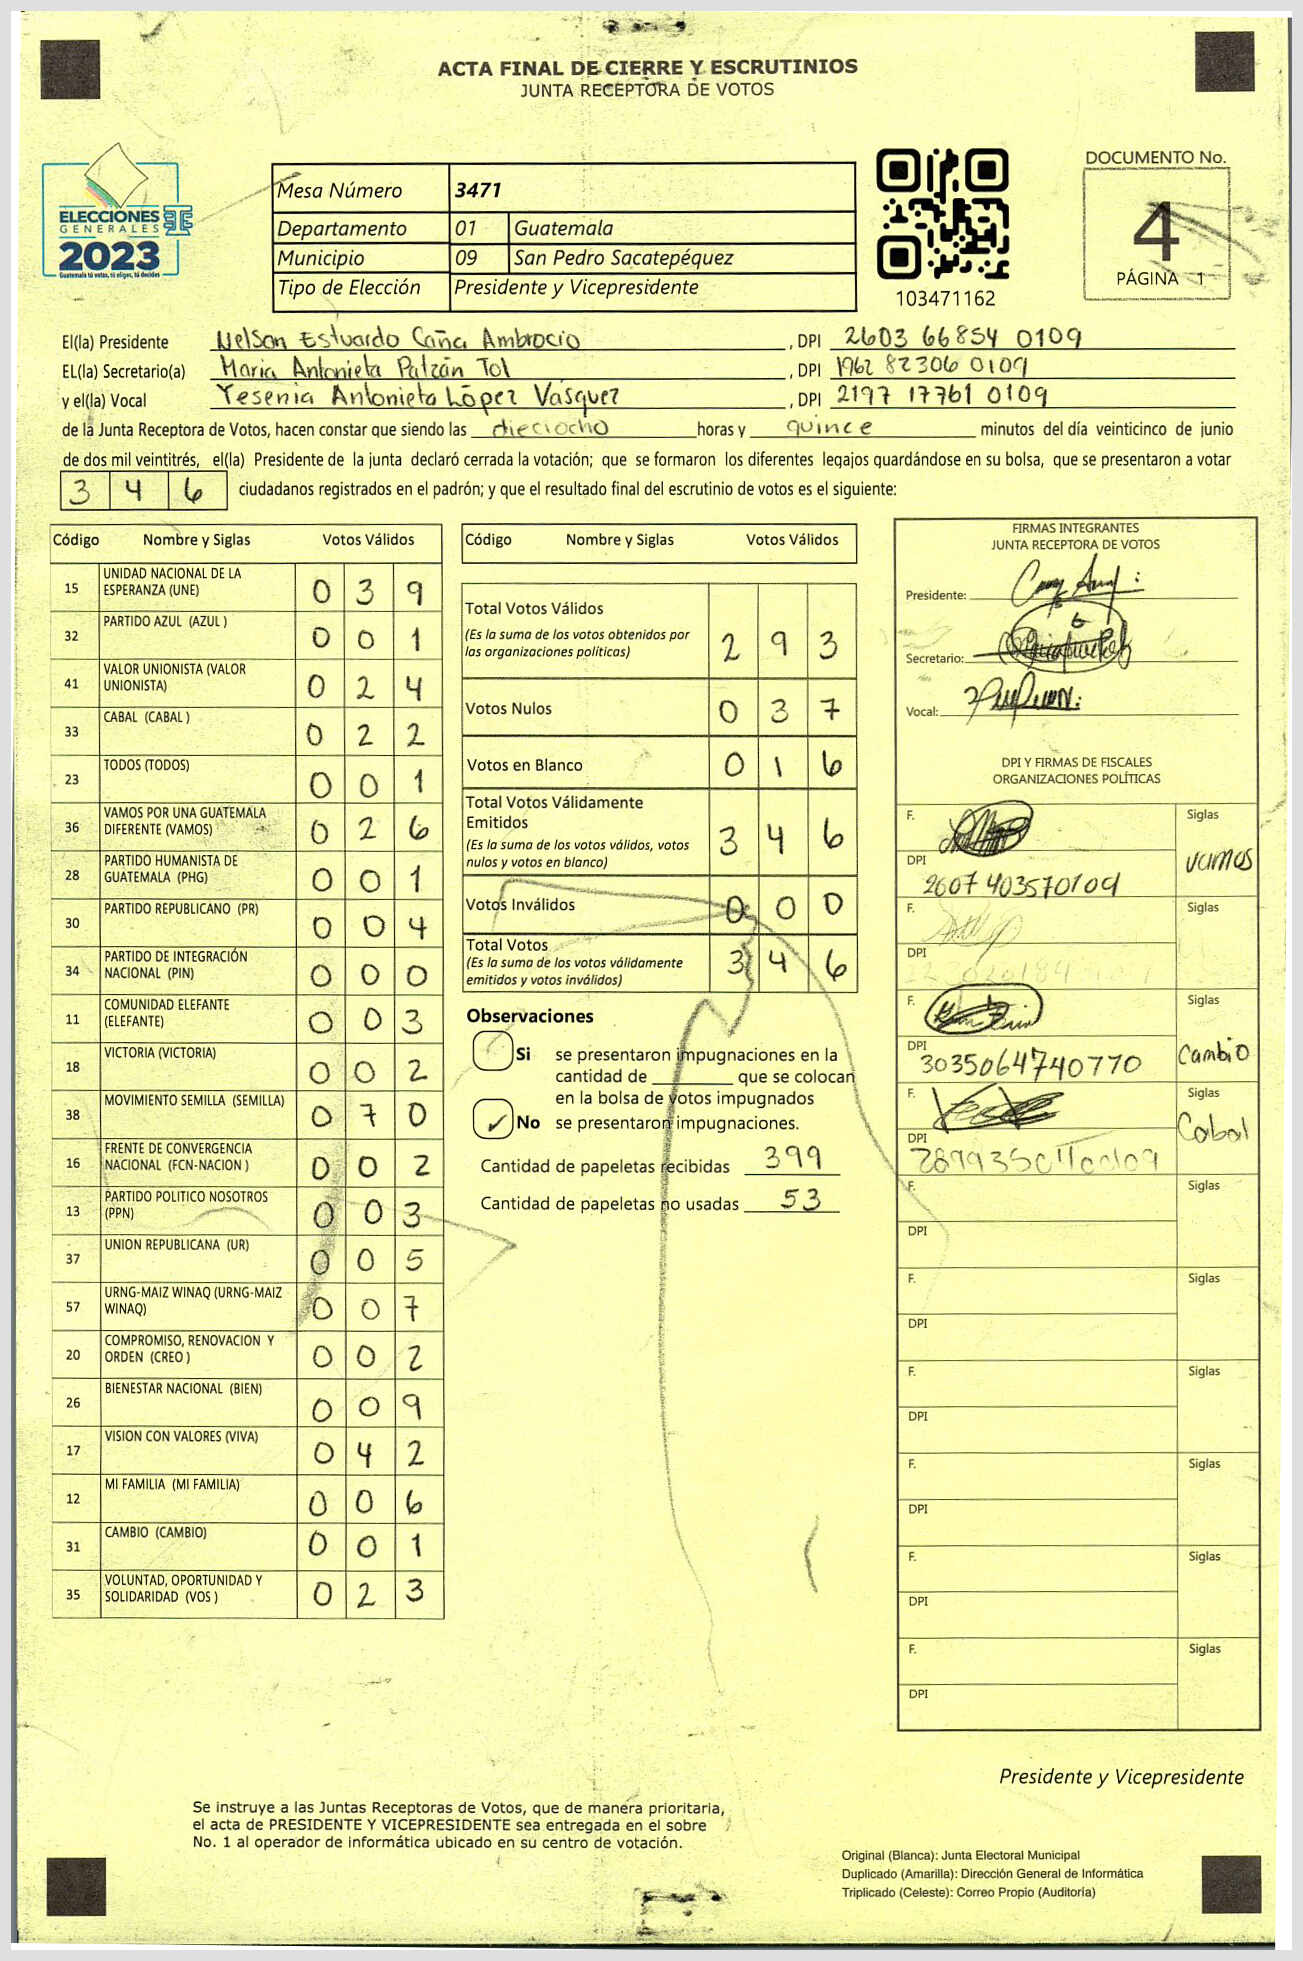 ACTA FINAL DE CIERRE Y ESCRUTINIOS
JUNTA RECEPTORA DE VOTOS
ELECCIONES
GENERALES
2023
Guatemala tú votas, tú eliges, tú decides
Mesa Número 3471
Departamento 01 Guatemala
Municipio 09 San Pedro Sacatepéquez
Tipo de Elección Presidente y Vicepresidente
103471162
DOCUMENTO No.
4
PÁGINA 1
El(la) Presidente Nelson Estuardo Caña Ambrocio, DPI 2603 66854 0109
EL(la) Secretario(a) Maria Antonieta Patzán Tol, DPI 1962 82306 0109
y el(la) Vocal Yesenia Antonieta López Vásquez, DPI 2197 17761 0109
de la Junta Receptora de Votos, hacen constar que siendo las dieciocho horas y quince minutos del día veinticinco de junio
de dos mil veintitrés, el(la) Presidente de la junta declaró cerrada la votación; que se formaron los diferentes legajos guardándose en su bolsa, que se presentaron a votar
3 4 6 ciudadanos registrados en el padrón; y que el resultado final del escrutinio de votos es el siguiente:
Código Nombre y Siglas Votos Válidos
15 UNIDAD NACIONAL DE LA ESPERANZA (UNE) 0 3 9
32 PARTIDO AZUL (AZUL ) 0 0 1
41 VALOR UNIONISTA (VALOR UNIONISTA) 0 2 4
33 CABAL (CABAL ) 0 2 2
23 TODOS (TODOS) 0 0 1
36 VAMOS POR UNA GUATEMALA DIFERENTE (VAMOS) 0 2 6
28 PARTIDO HUMANISTA DE GUATEMALA (PHG) 0 0 1
30 PARTIDO REPUBLICANO (PR) 0 0 4
34 PARTIDO DE INTEGRACIÓN NACIONAL (PIN) 0 0 0
11 COMUNIDAD ELEFANTE (ELEFANTE) 0 0 3
18 VICTORIA (VICTORIA) 0 0 2
38 MOVIMIENTO SEMILLA (SEMILLA) 0 7 0
16 FRENTE DE CONVERGENCIA NACIONAL (FCN-NACION ) 0 0 2
13 PARTIDO POLITICO NOSOTROS (PPN) 0 0 3
37 UNION REPUBLICANA (UR) 0 0 5
57 URNG-MAIZ WINAQ (URNG-MAIZ WINAQ) 0 0 7
20 COMPROMISO, RENOVACION Y ORDEN (CREO ) 0 0 2
26 BIENESTAR NACIONAL (BIEN) 0 0 9
17 VISION CON VALORES (VIVA) 0 4 2
12 MI FAMILIA (MI FAMILIA) 0 0 6
31 CAMBIO (CAMBIO) 0 0 1
35 VOLUNTAD, OPORTUNIDAD Y SOLIDARIDAD (VOS ) 0 2 3
Código Nombre y Siglas Votos Válidos
Total Votos Válidos 2 9 3
(Es la suma de los votos obtenidos por
las organizaciones políticas)
Votos Nulos 0 3 7
Votos en Blanco 0 1 6
Total Votos Válidamente
Emitidos 3 4 6
(Es la suma de los votos válidos, votos
nulos y votos en blanco)
Votos Inválidos 0 0 0
Total Votos 3 4 6
(Es la suma de los votos válidamente
emitidos y votos inválidos)
Observaciones
Si se presentaron impugnaciones en la
cantidad de ________ que se colocan
en la bolsa de votos impugnados
✓ No se presentaron impugnaciones.
Cantidad de papeletas recibidas 399
Cantidad de papeletas no usadas 53
FIRMAS INTEGRANTES
JUNTA RECEPTORA DE VOTOS
Presidente:
Secretario:
Vocal:
DPI Y FIRMAS DE FISCALES
ORGANIZACIONES POLÍTICAS
F. Siglas
DPI 2607 403570109 vamos
F. Siglas
DPI
F. Siglas
DPI 3035064740770 Cambio
F. Siglas
DPI Cabal
F. Siglas
DPI
F. Siglas
DPI
F. Siglas
DPI
F. Siglas
DPI
F. Siglas
DPI
F. Siglas
DPI
Presidente y Vicepresidente
Se instruye a las Juntas Receptoras de Votos, que de manera prioritaria,
el acta de PRESIDENTE Y VICEPRESIDENTE sea entregada en el sobre
No. 1 al operador de informática ubicado en su centro de votación.
Original (Blanca): Junta Electoral Municipal
Duplicado (Amarilla): Dirección General de Informática
Triplicado (Celeste): Correo Propio (Auditoría)